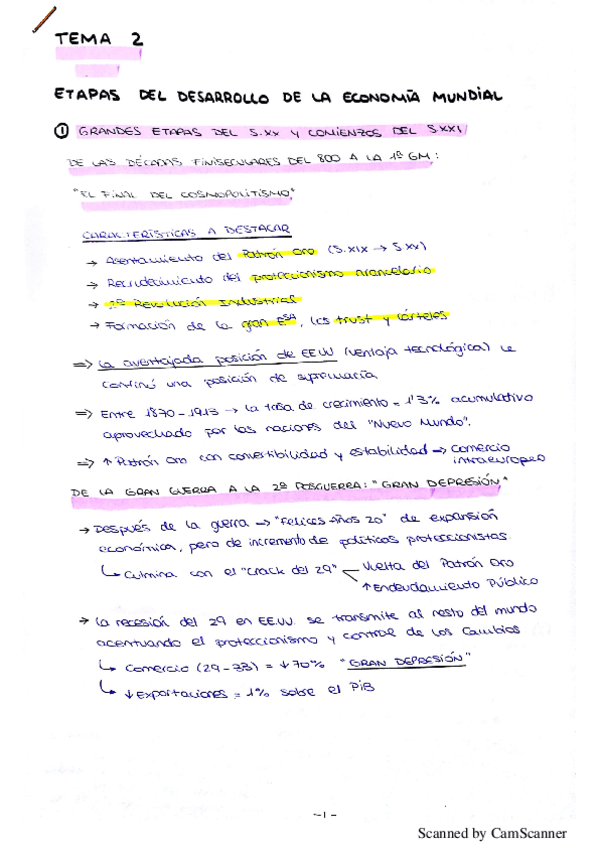 TEMA 2
ETAPAS DEL DESARROLLO DE LA ECONOMÍA MUNDIAL
① GRANDES ETAPAS DEL S.XX Y COMIENZOS DEL S XXI
DE LAS DÉCADAS FINISECULARES DEL 800 A LA 1ª GM:
"EL FINAL DEL COSMOPOLITISMO"
CARACTERÍSTICAS A DESTACAR
→ Asentamiento del Patrón Oro (S.XIX → S.XX)
→ Recrudecimiento del proteccionismo arancelario
→ 2ª Revolución Industrial
→ Formación de la gran Esa, los trust y cárteles
⇒ La aventajada posición de EEUU (ventaja tecnológica) le
confirió una posición de supremacía
⇒ Entre 1870-1913 → la tasa de crecimiento = 1'3% acumulativo
aprovechado por las naciones del "Nuevo Mundo".
⇒ ↑ Patrón Oro con convertibilidad y estabilidad → Comercio
intraeuropeo
DE LA GRAN GUERRA A LA 2ª POSGUERRA: "GRAN DEPRESIÓN"
→ Después de la guerra → "Felices Años 20" de expansión
económica, pero de incremento de políticas proteccionistas.
↳ Culmina con el "Crack del 29" Vuelta del Patrón Oro
↑ Endeudamiento Público
→ La recesión del 29 en EEUU. se transmite al resto del mundo
acentuando el proteccionismo y control de los Cambios
↳ Comercio (29-33) = ↓ 70% "GRAN DEPRESIÓN"
↳ ↓ Exportaciones = 1% sobre el PIB
-1-
Scanned by CamScanner